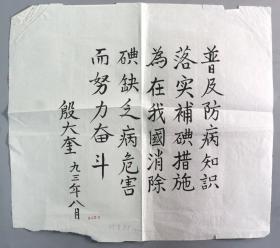 普及防病知识
落实補碘措施
為在我國消除
碘缺乏病危害
而努力奋斗
殷大奎
九三年八月